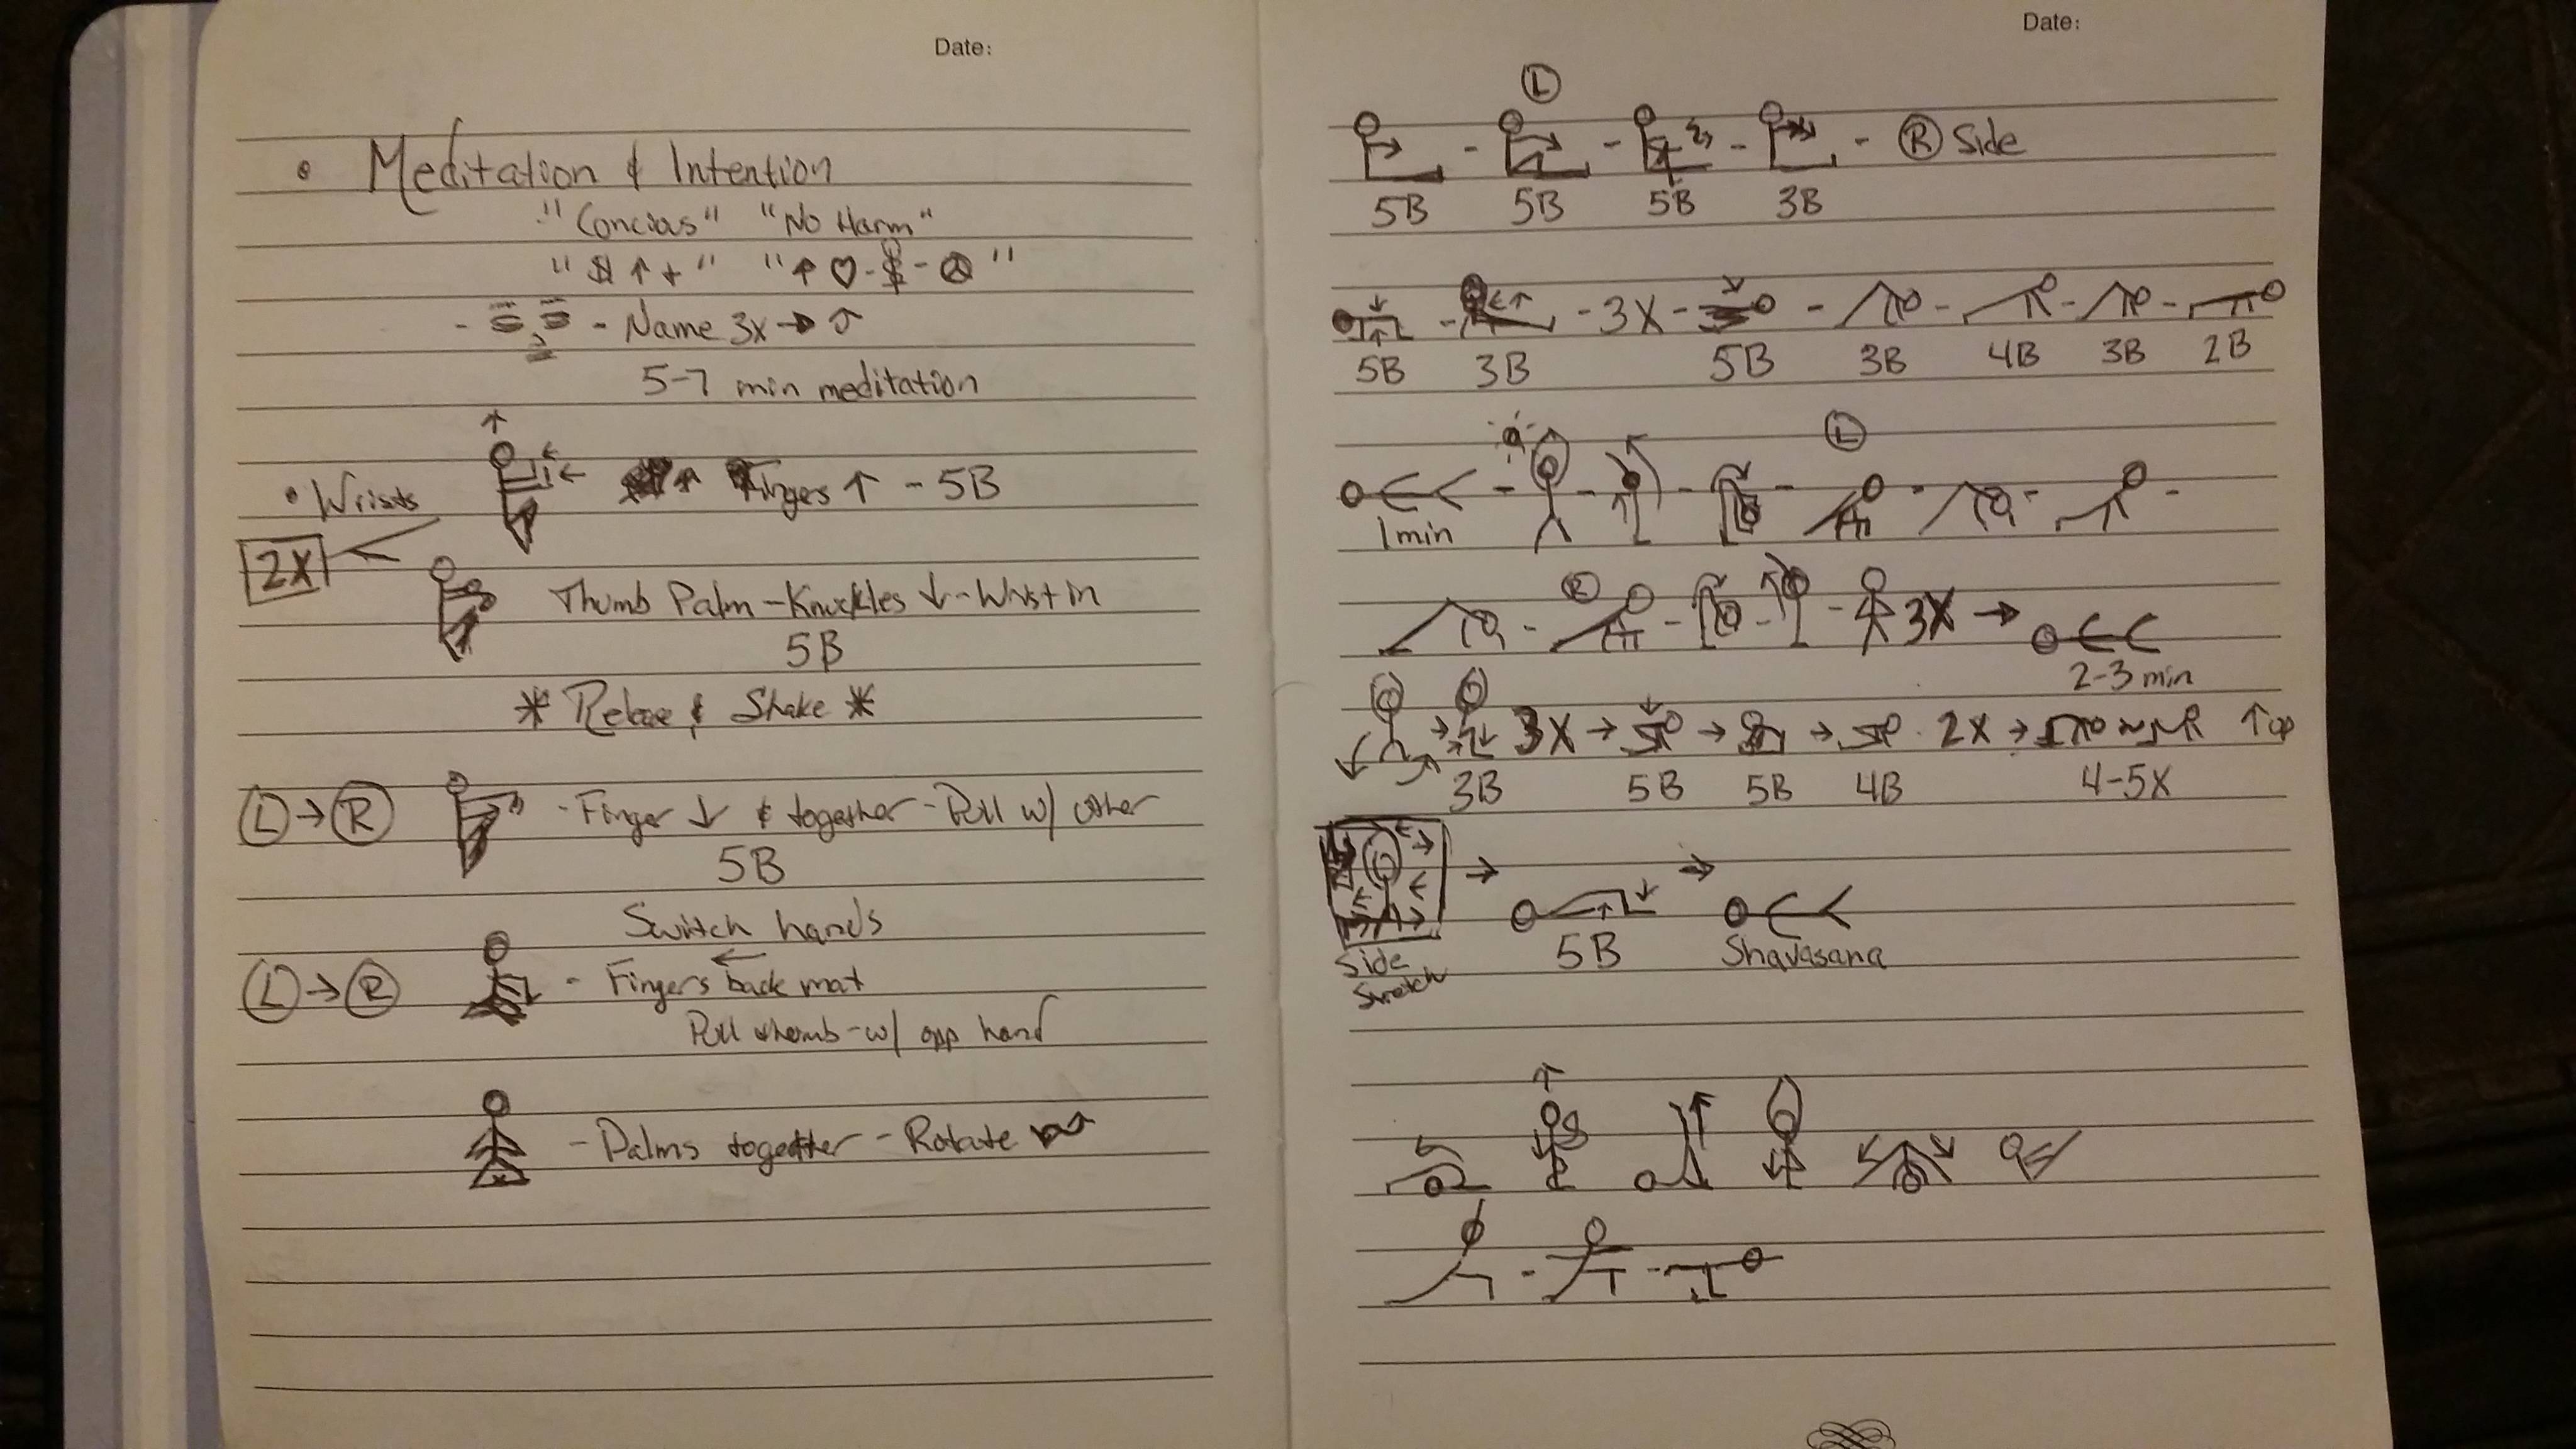 Date:
• Meditation & Intention
"Concious" "No Harm"
"$ ↑ +" "↑ ♡ - $ - ☮"
- Name 3x → ↑
5-7 min meditation
• Wrists
Fingers ↑ - 5B
2X
Thumb Palm - Knuckles ↓ - Wrist in
5B
* Release & Shake *
(L) → (R) - Finger ↓ & together - Pull w/ other
5B
Switch hands
(L) → (R) - Fingers back mat
Pull thumb - w/ opp hand
- Palms together - Rotate
Date:
(L)
- (R) Side
5B 5B 5B 3B
- 3X -
5B 3B 5B 3B 4B 3B 2B
(L)
1 min
(R)
3X →
2-3 min
3X → → → 2X → ↑ op
3B 5B 5B 4B 4-5X
→ →
Side Stretch
5B Shavasana